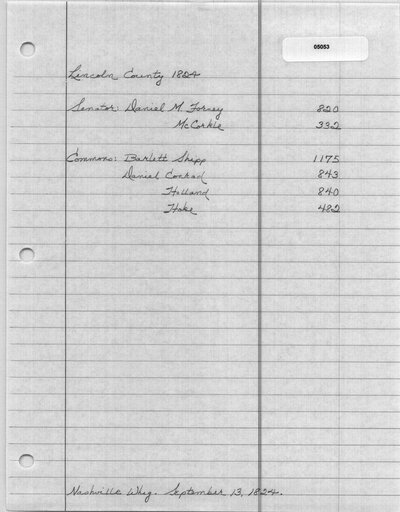 05053
Lincoln County 1824
Senator: Daniel M. Forney 820
McCorkle 332
Commons: Barlett Shipp 1175
Daniel Conrad 843
Holland 840
Hoke 482
Nashville Whig. September 13, 1824.